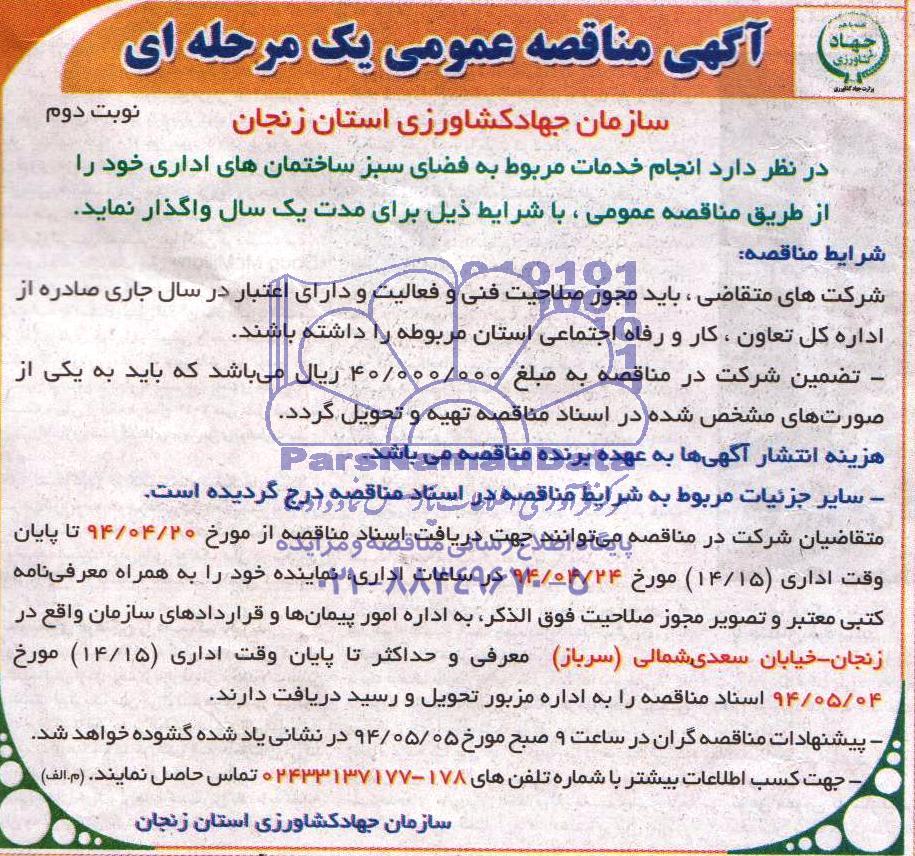 آگهی مناقصه عمومی یک مرحله ای
جهاد
کشاورزی
وزارت جهاد کشاورزی
نوبت دوم
سازمان جهادکشاورزی استان زنجان
در نظر دارد انجام خدمات مربوط به فضای سبز ساختمان های اداری خود را
از طریق مناقصه عمومی ، با شرایط ذیل برای مدت یک سال واگذار نماید.
شرایط مناقصه:
شرکت های متقاضی ، باید مجوز صلاحیت فنی و فعالیت و دارای اعتبار در سال جاری صادره از
اداره کل تعاون ، کار و رفاه اجتماعی استان مربوطه را داشته باشند.
– تضمین شرکت در مناقصه به مبلغ ۴۰/۰۰۰/۰۰۰ ریال می‌باشد که باید به یکی از
صورت‌های مشخص شده در اسناد مناقصه تهیه و تحویل گردد.
هزینه انتشار آگهی‌ها به عهده برنده مناقصه می باشد.
ParsNamadData
– سایر جزئیات مربوط به شرایط مناقصه در اسناد مناقصه درج گردیده است.
متقاضیان شرکت در مناقصه می‌توانند جهت دریافت اسناد مناقصه از مورخ ۹۴/۰۴/۲۰ تا پایان
پایگاه اطلاع رسانی مناقصه و مزایده
وقت اداری (۱۴/۱۵) مورخ ۹۴/۰۴/۲۴ در ساعات اداری نماینده خود را به همراه معرفی‌نامه
۰۲۱-۸۸۳۴۹۶۷۰-۵
کتبی معتبر و تصویر مجوز صلاحیت فوق الذکر، به اداره امور پیمان‌ها و قراردادهای سازمان واقع در
زنجان–خیابان سعدی‌شمالی (سرباز) معرفی و حداکثر تا پایان وقت اداری (۱۴/۱۵) مورخ
۹۴/۰۵/۰۴ اسناد مناقصه را به اداره مزبور تحویل و رسید دریافت دارند.
– پیشنهادات مناقصه گران در ساعت ۹ صبح مورخ ۹۴/۰۵/۰۵ در نشانی یاد شده گشوده خواهد شد.
– جهت کسب اطلاعات بیشتر با شماره تلفن های ۱۷۸–۰۲۴۳۳۱۳۷۱۷۷ تماس حاصل نمایند. (م.الف)
سازمان جهادکشاورزی استان زنجان